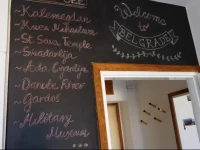 ~Kalemegdan
~Knez Mihailova
~St Sava Temple
~Skadarlija
~Ada Ciganlija
~Danube River
~Gardoš
~Military
Museum
...
Welcome
to
BELGRADE